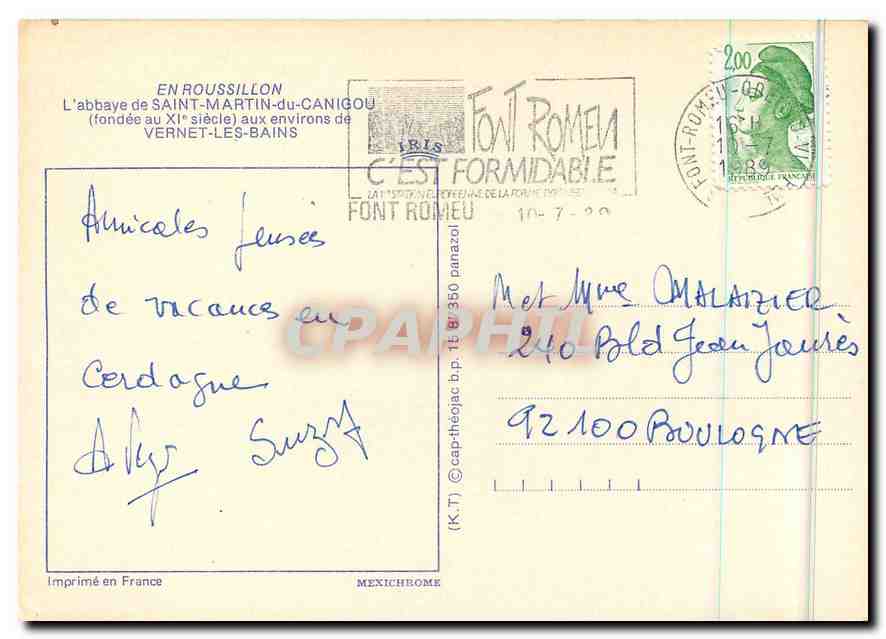 EN ROUSSILLON
L'abbaye de SAINT-MARTIN-du-CANIGOU
(fondée au XIe siècle) aux environs de
VERNET-LES-BAINS
IRIS
FONT ROMEU
C'EST FORMIDABLE
FONT ROMEU 10-7-89
2,00
RÉPUBLIQUE FRANÇAISE
FONT-ROMEU
16H
10-7
1989
Amicales pensées
de vacances en
Cerdagne
Suzy
M et Mme MALAIZIER
240 Bld Jean Jaurès
92100 BOULOGNE
(K.T) © cap-théojac b.p. 15 87350 panazol
CPAPHIL
Imprimé en France
MEXICHROME